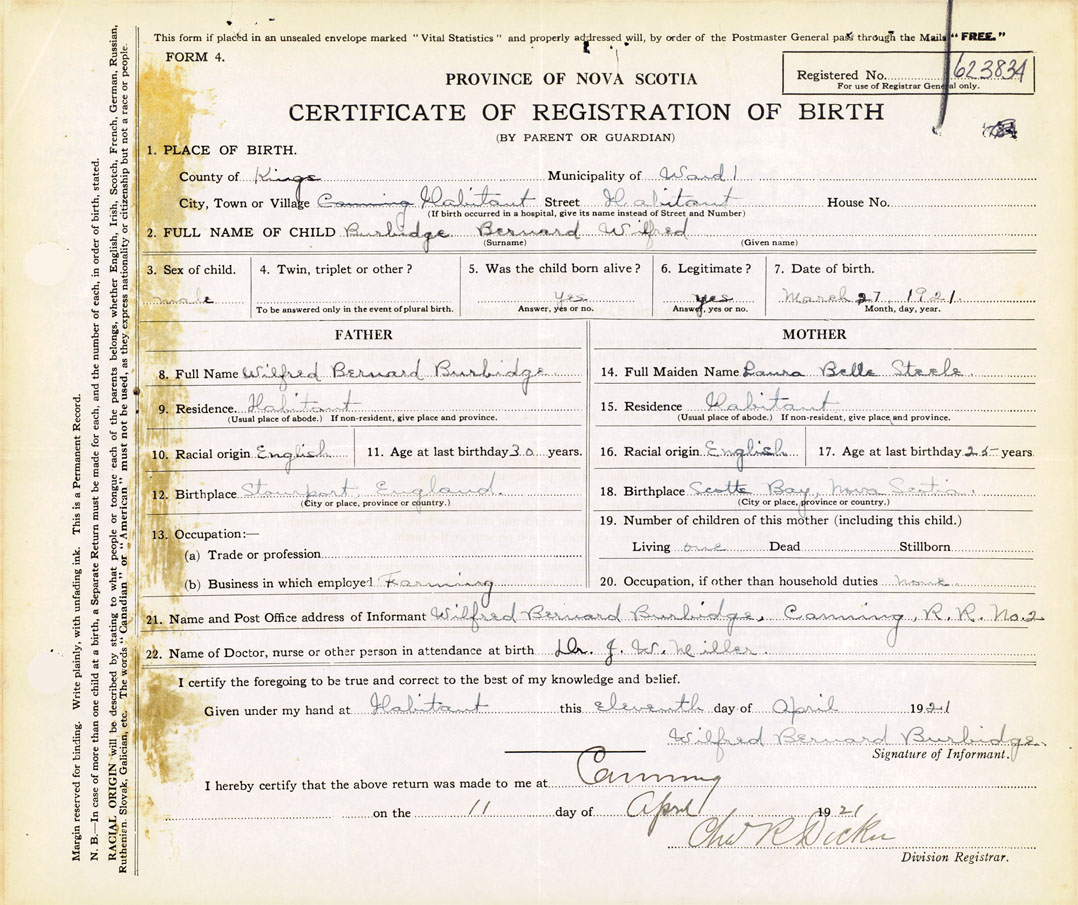 This form if placed in an unsealed envelope marked "Vital Statistics" and properly addressed will, by order of the Postmaster General pass through the Mails "FREE."
FORM 4.
Registered No. 623834
For use of Registrar General only.
PROVINCE OF NOVA SCOTIA
CERTIFICATE OF REGISTRATION OF BIRTH
(BY PARENT OR GUARDIAN)
1. PLACE OF BIRTH.
County of Kings Municipality of Ward 1
City, Town or Village Canning Habitant Street Habitant House No.
(If birth occurred in a hospital, give its name instead of Street and Number)
2. FULL NAME OF CHILD Burbidge Bernard Wilfred
(Surname) (Given name)
3. Sex of child. 4. Twin, triplet or other? 5. Was the child born alive? 6. Legitimate? 7. Date of birth.
male yes yes March 27, 1921.
To be answered only in the event of plural birth. Answer, yes or no. Answer, yes or no. Month, day, year.
FATHER MOTHER
8. Full Name Wilfred Bernard Burbidge. 14. Full Maiden Name Laura Belle Steele.
9. Residence. Habitant 15. Residence Habitant
(Usual place of abode.) If non-resident, give place and province. (Usual place of abode.) If non-resident, give place and province.
10. Racial origin English 11. Age at last birthday 30 years. 16. Racial origin English 17. Age at last birthday 25 years
12. Birthplace Stourport, England. 18. Birthplace Scotts Bay, Nova Scotia.
(City or place, province or country.) (City or place, province or country.)
13. Occupation:— 19. Number of children of this mother (including this child.)
(a) Trade or profession Living one Dead Stillborn
(b) Business in which employed Farming 20. Occupation, if other than household duties none.
21. Name and Post Office address of Informant Wilfred Bernard Burbidge, Canning, R. R. No. 2
22. Name of Doctor, nurse or other person in attendance at birth Dr. J. W. Miller.
I certify the foregoing to be true and correct to the best of my knowledge and belief.
Given under my hand at Habitant this eleventh day of April 1921
Wilfred Bernard Burbidge.
Signature of Informant.
I hereby certify that the above return was made to me at Canning
on the 11 day of April 1921
Chas R Dickie
Division Registrar.
Margin reserved for binding. Write plainly, with unfading ink. This is a Permanent Record.
N. B.—In case of more than one child at a birth, a Separate Return must be made for each, and the number of each, in order of birth, stated.
RACIAL ORIGIN will be described by stating to what people or tongue each of the parents belongs, whether English, Irish, Scotch, French, German, Russian,
Ruthenian, Slovak, Galician, etc. The words "Canadian" or "American" must not be used, as they express nationality or citizenship but not a race or people.